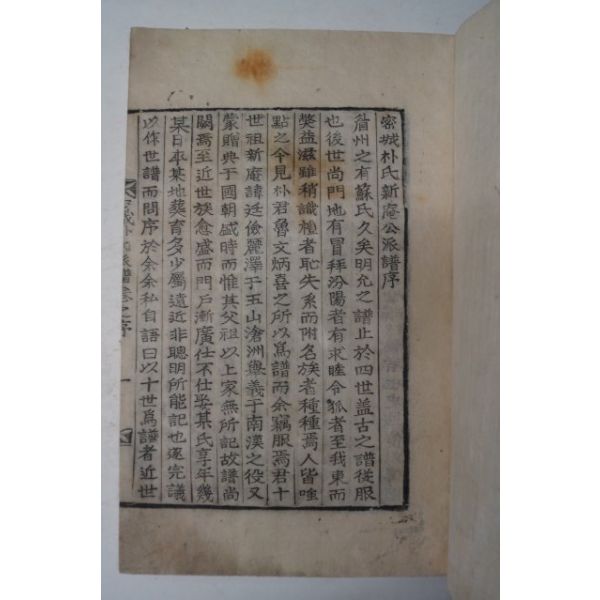 密城朴氏新庵公派譜序
眉州之有蘇氏久矣明允之譜止於四世盖古之譜從服
也後世尚門地有冒拜汾陽者有求睦令狐者至我東而
獘益滋雖稍識禮者恥失系而附名族者種種焉人皆唫
點之今見朴君魯文炳喜之所以爲譜而余竊服焉君十
世祖新庵諱廷儉麗澤于玉山滄洲擧義于南漢之役又
蒙贈典于國朝盛時而惟其父祖以上家無所記故譜尚
闕焉至近世族愈盛而門戶漸廣仕不仕娶某氏享年幾
某日卒某地葬育多少屬遠近非聰明所能記也遂完議
以作世譜而問序於余余私自語曰以十世爲譜者近世
派譜卷之 序
一